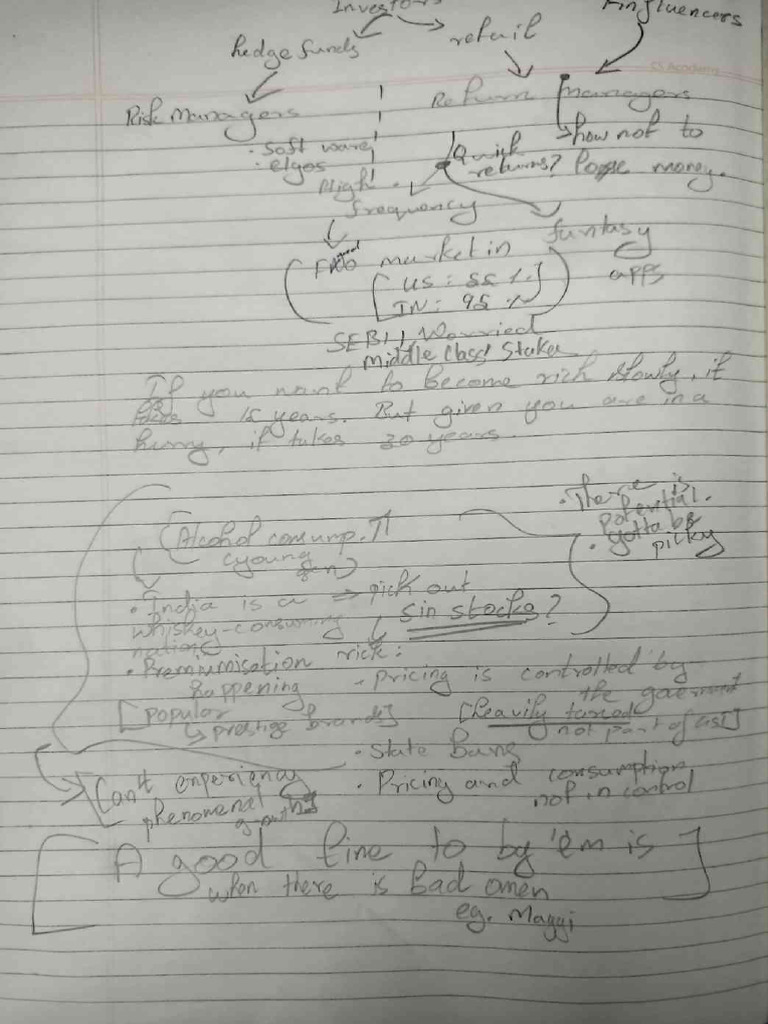 Investors
finfluencers
hedge funds
retail
Risk Managers
Return managers
• Software
• elgos
how not to
loose money.
Quick
returns?
High
frequency
fantasy
apps
FNO market in
US: 55 %
IN: 95 %
SEBI Worried
Middle Class Stakes
If you want to become rich slowly, it
takes 15 years. But given you are in a
hurry, it takes 30 years.
• There is
potential.
• gotta be
picky
Alcohol consump. ↑↑
(young
gen)
• India is a ⇒ pick out
whiskey-consuming
nation
sin stocks?
• Premiumisation
happening
risk:
• Pricing is controlled by
the government
[popular
↳ prestige brands]
[heavily taxed
not part of GST]
• State Bans
• Pricing and consumption
not in control
Can't experience
phenomenal
growth
A good time to by 'em is
when there is bad omen
eg. Maggi